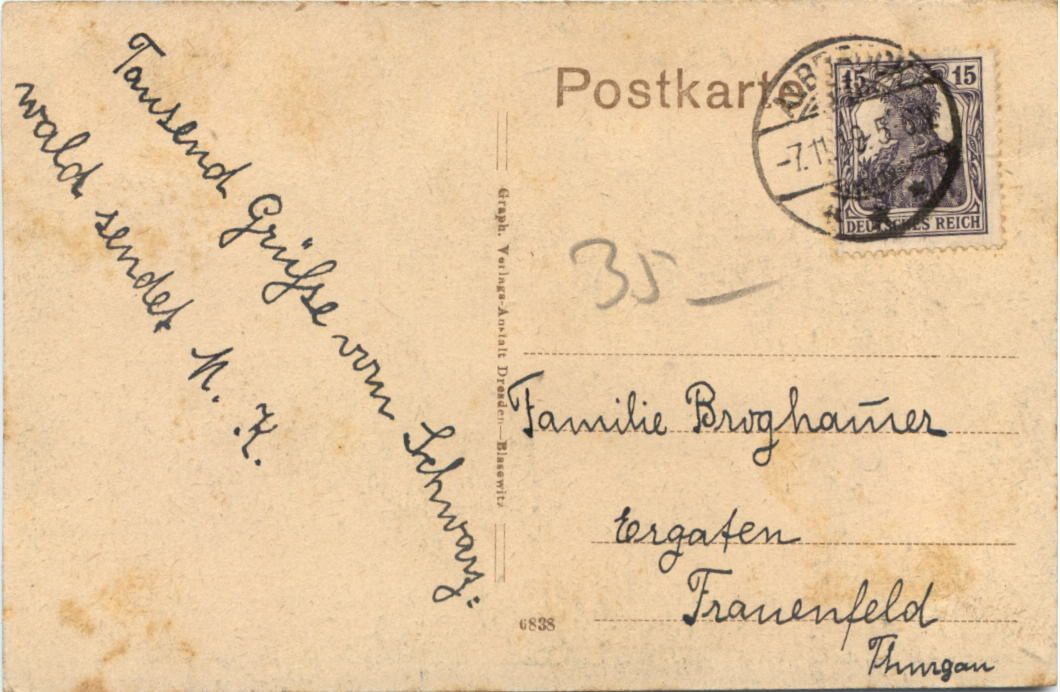 Tausend Grüsse vom Schwarz=
wald sendet M. K.
Postkarte
15 15
DEUTSCHES REICH
-7.11.19. 5-6N
35 —
Graph. Verlags-Anstalt Dresden—Blasewitz
Familie Brogham̄er
Ergaten
Frauenfeld
Thurgau
6838